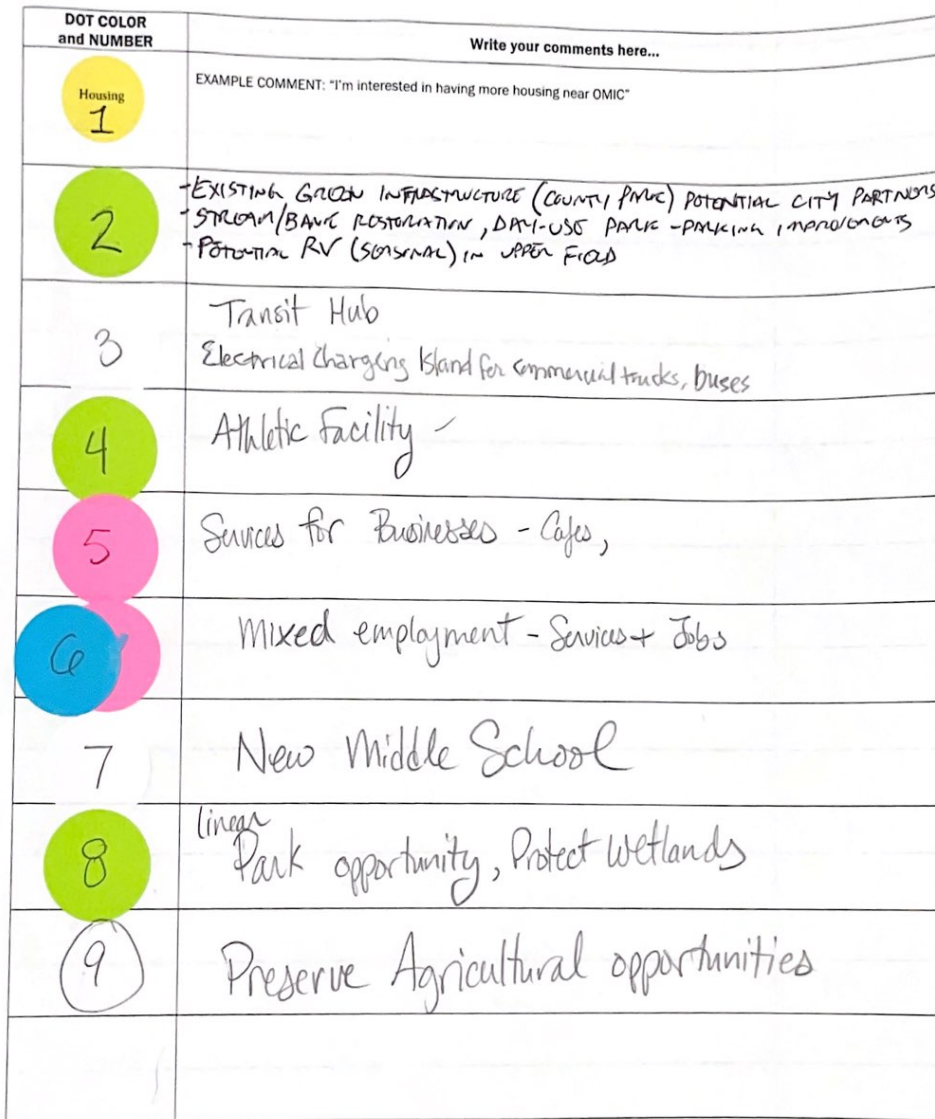 DOT COLOR
and NUMBER
Write your comments here...
Housing
1
EXAMPLE COMMENT: "I'm interested in having more housing near OMIC"
2
-EXISTING GREEN INFRASTRUCTURE (COUNTY PARK) POTENTIAL CITY PARTNERS
-STREAM/BANK RESTORATION, DAY-USE PARK -PARKING IMPROVEMENTS
-POTENTIAL RV (SEASONAL) IN UPPER FIELD
3
Transit Hub
Electrical Charging Island for commercial trucks, buses
4
Athletic Facility -
5
Services for Businesses - Cafes,
6
Mixed employment - Services + Jobs
7
New Middle School
8
linear
Park opportunity, Protect Wetlands
9
Preserve Agricultural opportunities